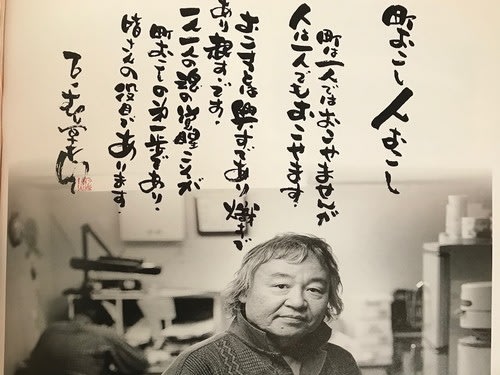 町おこし人むこし
町は一人ではおこせませんが
人は一人でもおこせます。
おこすとは興すであり熾すで
あり起すです。
一人一人の魂の覚醒こそが
町おこしの第一歩であり、
皆さんの役目であります。